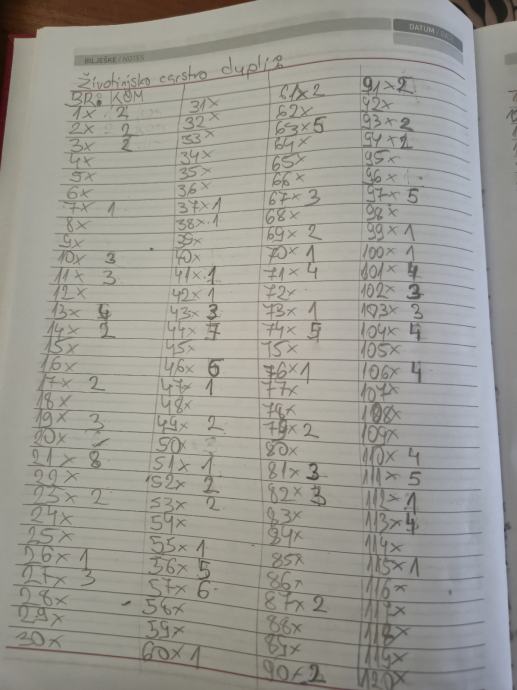 BILJEŠKE / NOTES
DATUM
Životinjsko carstvo duplić
BR. KOM
1x 2
2x 2
3x 2
4x
5x
6x
7x 1
8x
9x
10x 3
11x 3
12x
13x 4
14x 2
15x
16x
17x 2
18x
19x 3
20x
21x 8
22x
23x 2
24x
25x
26x 1
27x 3
28x
29x
30x
31x
32x
33x
34x
35x
36x
37x 1
38x 1
39x
40x
41x 1
42x 1
43x 3
44x 7
45x
46x 6
47x 1
48x
49x 2
50x
51x 1
52x 2
53x 2
54x
55x 1
56x 5
57x 6
58x
59x
60x 1
61x 2
62x
63x 5
64x
65x
66x
67x 3
68x
69x 2
70x 1
71x 4
72x
73x 1
74x 5
75x
76x 1
77x
78x
79x 2
80x
81x 3
82x 3
83x
84x
85x
86x
87x 2
88x
89x
90x 2
91x 2
92x
93x 2
94x 2
95x
96x
97x 5
98x
99x 1
100x 1
101x 4
102x 3
103x 3
104x 4
105x
106x 4
107x
108x
109x
110x 4
111x 5
112x 1
113x 4
114x
115x 1
116x
117x
118x
119x
120x